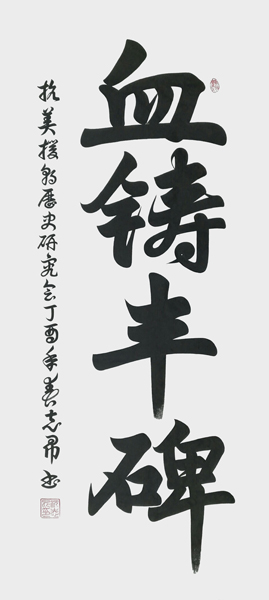 血铸丰碑
抗美援朝歷史研究会丁酉年春志书